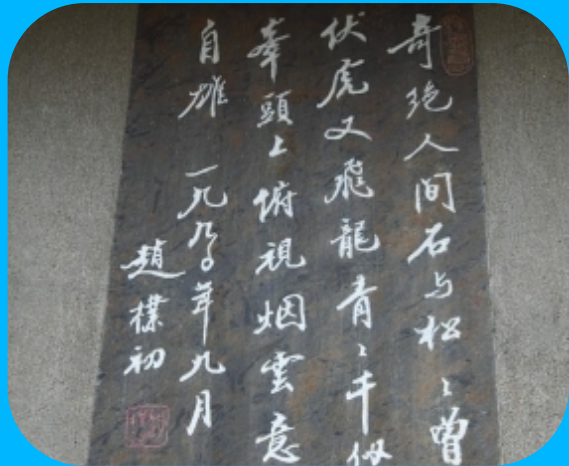 奇绝人间石与松〻曾
伏虎又飛龍青〻千仭
峯頭上俯視烟雲意
自雄 一九九〇年九月
趙樸初